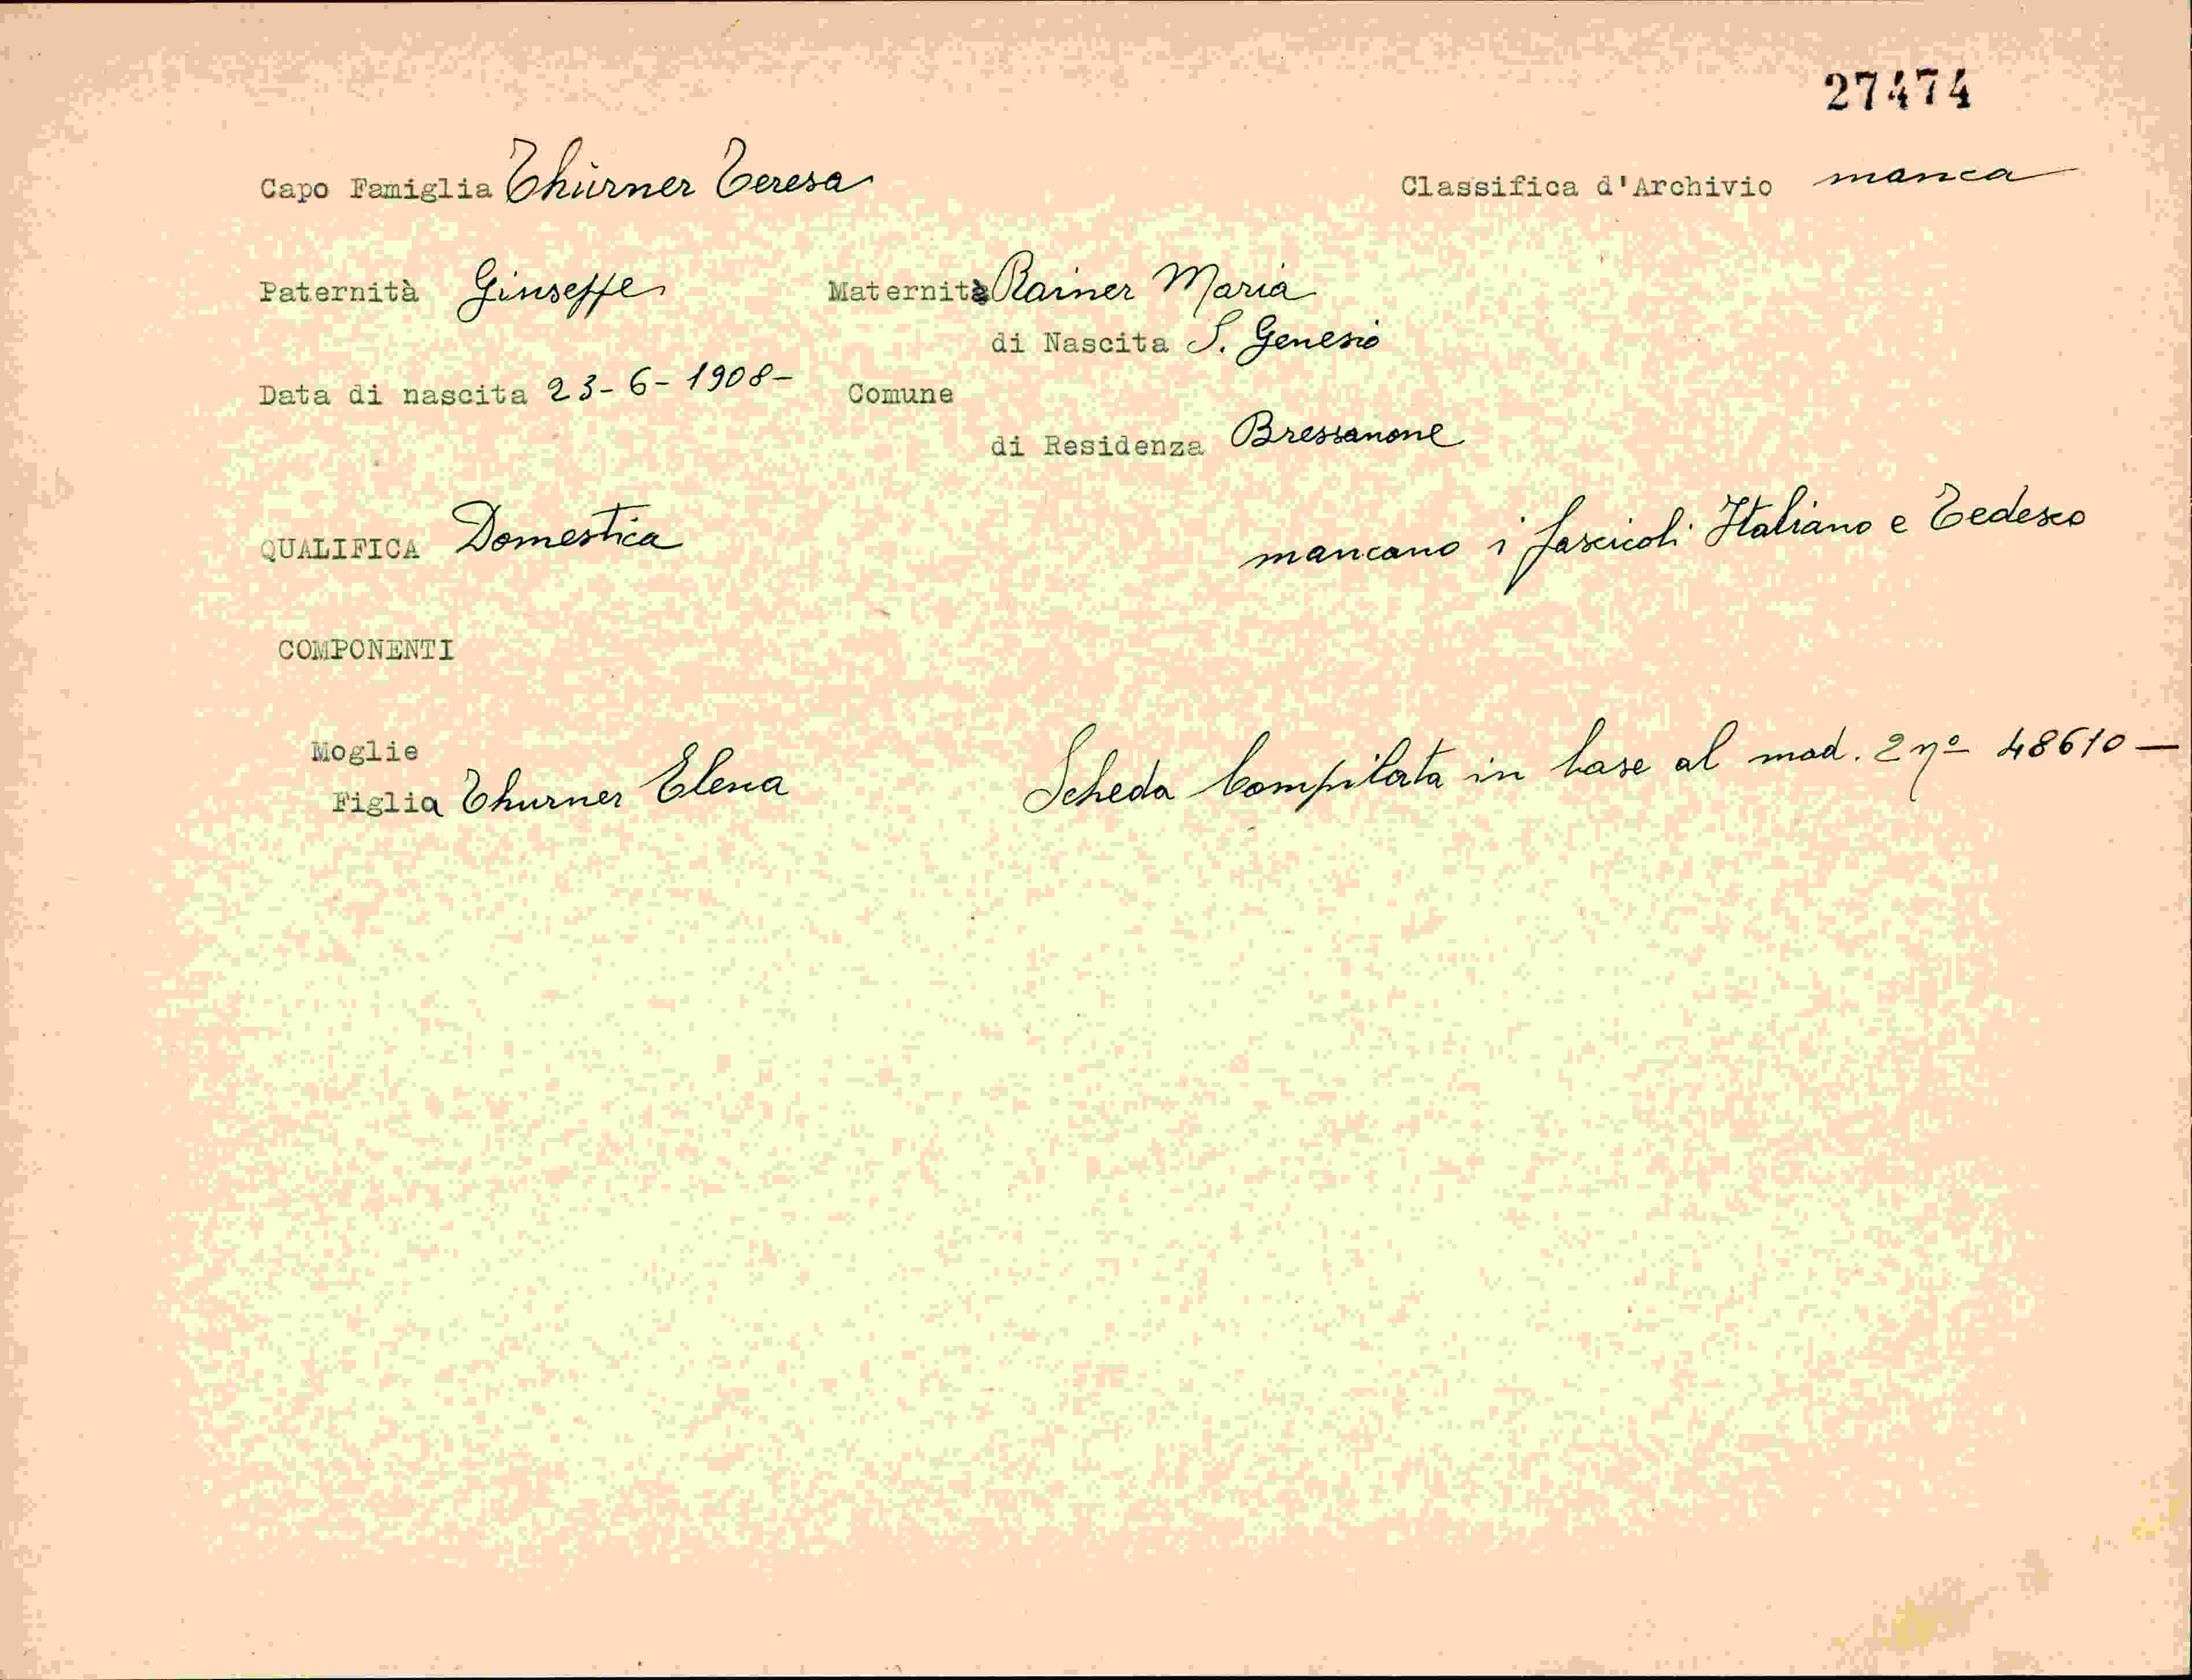 27474
Capo Famiglia Thürner Teresa Classifica d'Archivio manca
Paternità Giuseppe Maternità Rainer Maria
di Nascita S. Genesio
Data di nascita 23-6-1908- Comune
di Residenza Bressanone
QUALIFICA Domestica mancano i fascicoli Italiano e Tedesco
COMPONENTI
Moglie
Figlia Thurner Elena Scheda Compilata in base al mod. 2 nº 48610 —